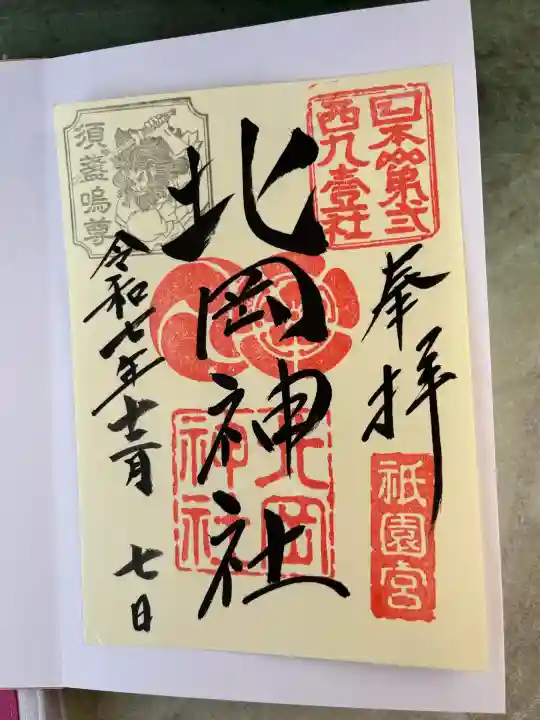 奉拝
日本第弐
西九壹社
祇園宮
北岡神社
北岡
神社
須盞嗚尊
令和七年十二月 七日